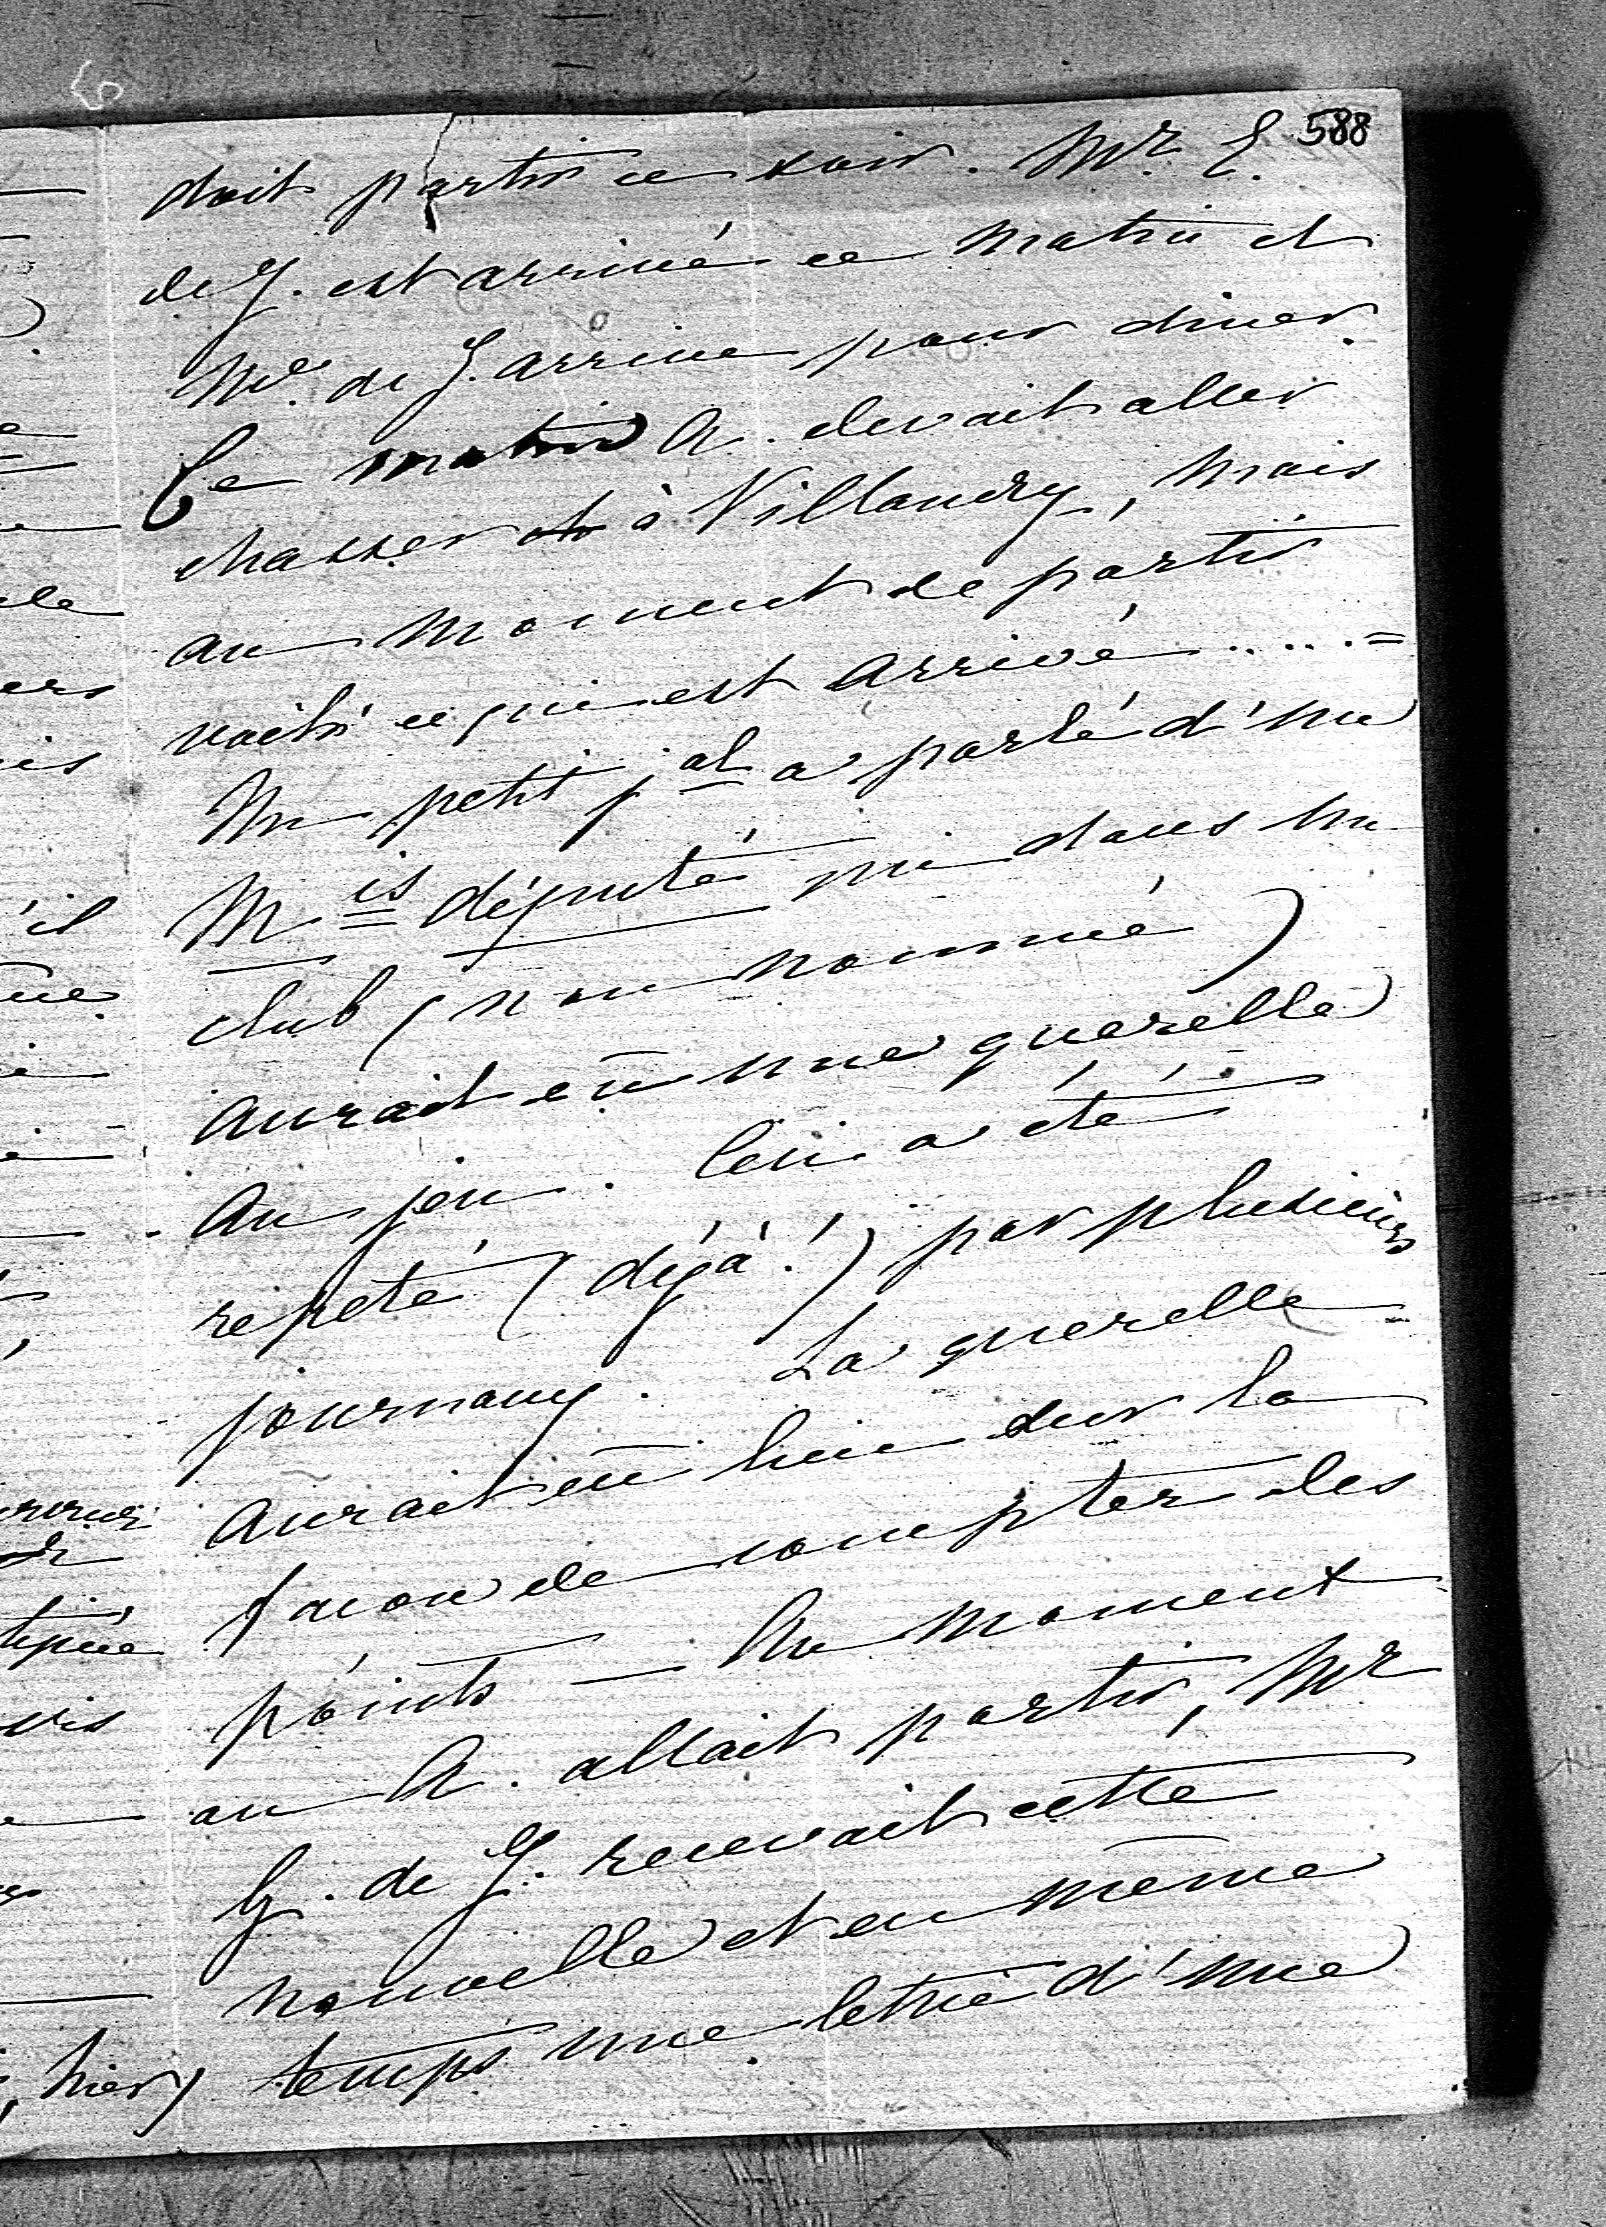 588
doit partir ce soir. Mr. E.
de J. est arrivé ce matin et
Me. de J. arrive pour diner.
Ce matin A. devait aller
chasser à Villandry, mais
au moment de partir
voilà ce qui est arrivé ..... =
Un petit jal a parlé d'un
Mis député qui dans un
club (non nommé)
aurait eu une querelle
au jeu. Ceci a été
repeté (déjà!) par plusieurs
journaux. La querelle
aurait eu lieu sur la
facon de compter les
points — Au moment
ou A. allait partir, Mr
G. de J. recevait cette
nouvelle et en même
temps une lettre d'une